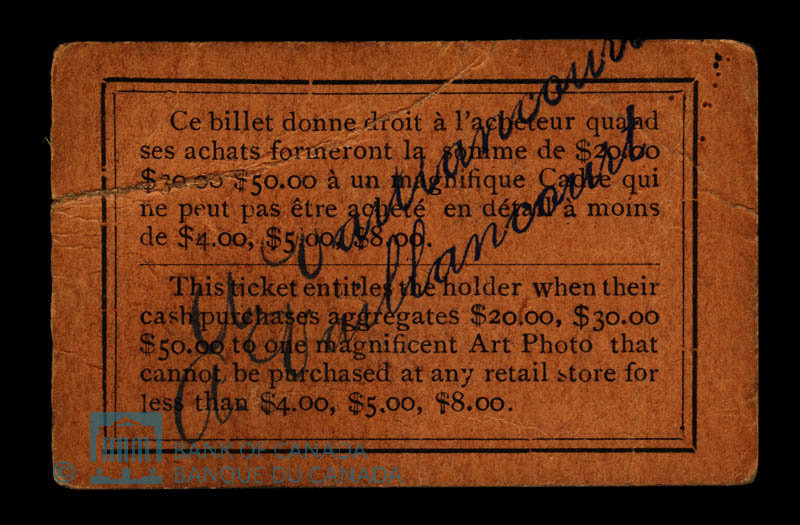 Ce billet donne droit à l'acheteur quand
ses achats formeront la somme de $20.00
$30.00 $50.00 à un magnifique Cadre qui
ne peut pas être acheté en détail à moins
de $4.00, $5.00, $8.00.
This ticket entitles the holder when their
cash purchases aggregates $20.00, $30.00
$50.00 to one magnificent Art Photo that
cannot be purchased at any retail store for
less than $4.00, $5.00, $8.00.
Vaillancourt
Vaillancourt
© BANK OF CANADA
BANQUE DU CANADA